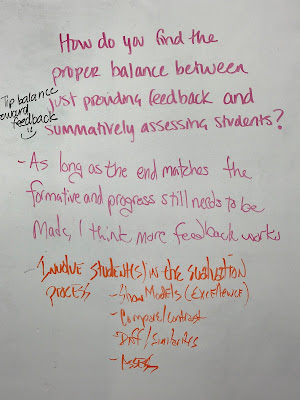 How do you find the
proper balance between
just providing feedback and
summatively assessing students?
Tip balance
toward
feedback
- As long as the end matches the
formative and progress still needs to be
Made, I think more feedback works
- Involve student(s) in the evaluation
process
- Show Models (Excellence)
- Compare/Contrast
- Diff/Similarities
- Assess